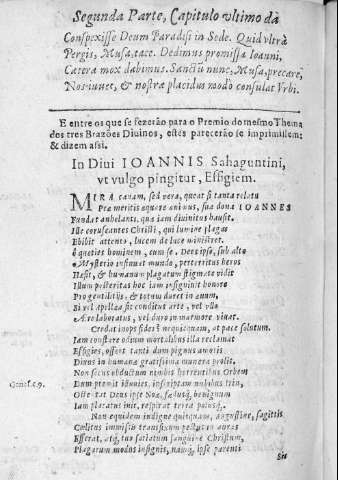 Segunda Parte, Capitulo vltimo da
Conspexisse Deum Paradisi in Sede. Quid vltrà
Pergis, Musa, tace. Dedimus promissa Ioanni,
Cætera mox dabimus. Sanctũ nunc, Musa, precare,
Nos iuuet, & nostra placidus modò consulat Vrbi.
E entre os que se fezerão para o Premio do mesmo Thema
dos tres Brazões Diuinos, estes parecerão se imprimissem:
& dizem assi.
In Diui IOANNIS Sahaguntini,
vt vulgo pingitur, Effigiem.
MIRA canam, sed vera, queat si tanta relatu
Præ meritis æquare animus, sua dona IOANNES
Fundat anhelanti, quæ iam diuinitus hausit.
Ille coruscantes Christi, qui lumine plagas
Ebibit attento, lucem de luce ministret.
ò quoties hominem, cum se, Deus ipse, sub alto
Mysterio insinuat mundo, perterritus heros
Hæsit, & humanum plagatum stigmate vidit
Illum posteritas hoc iam insiguiuit honore
Progenitilijs, & totum duret in ænum,
Si vel apellæa sit conditus arte, vel vllo
Ære laboratus, vel duro in marmore viuat.
Credat inops fidei nequicquam, at pace solutum.
Iam constare odium mortalibus illa reclamat
Effigies, offert tanti dum pignus amoris
Diuus in humanæ gratissima munera prolis.
Non secus obductum nimbis horrentibus Orbem
Genes. c. 9.
Dum promit illunies, inscriptam nubibus Irin,
Ostentat Deus ipse Noæ, fædusq; benignum
Iam placatus init, respirat terra polusq;
Non equidem indigne quitquam, augustine, sagittis
Cælitus immissis transfixum pectus in auras
Efferat, atq; tuo satiatum sanguine Christum,
Plagarum modus insignis, namq; ipse parenti
Sic